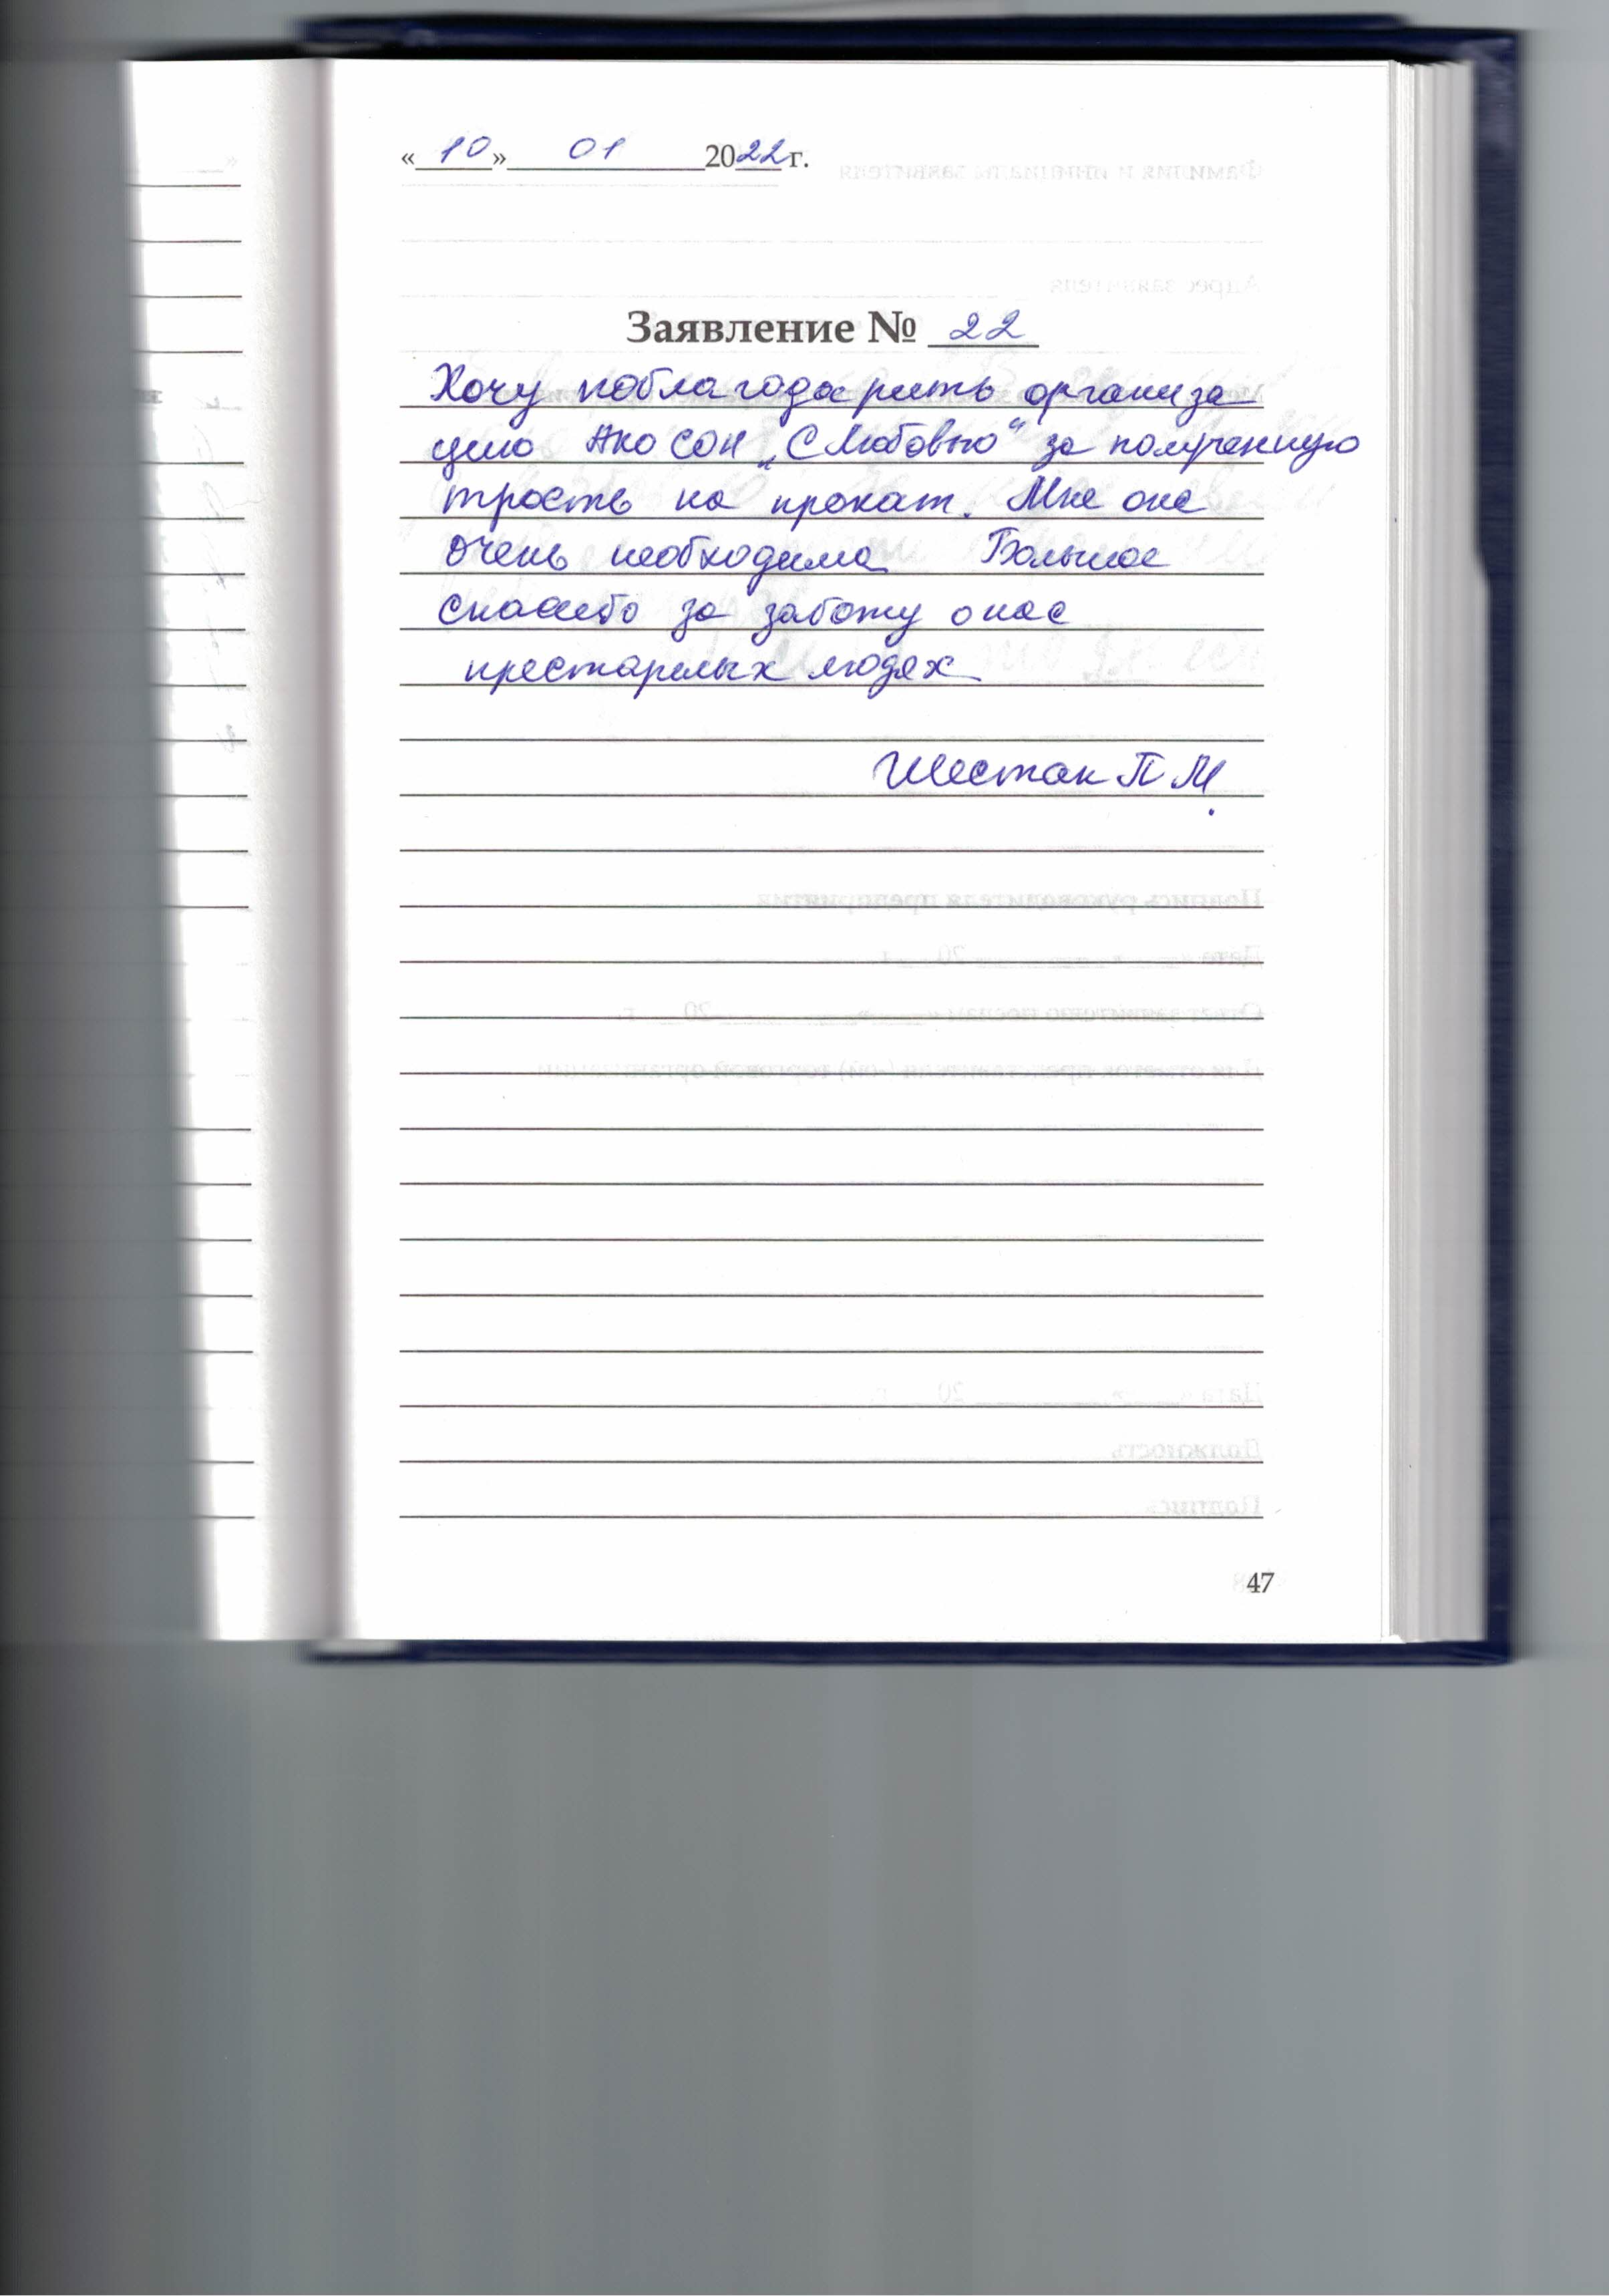 «10» 01 2022 г.
Заявление № 22
Хочу поблагодарить организа
цию АНО СОН „С Любовью“ за полученную
трость на прокат. Мне она
очень необходима Большое
спасибо за заботу о нас
престарелых людях
Шестак П М.
47